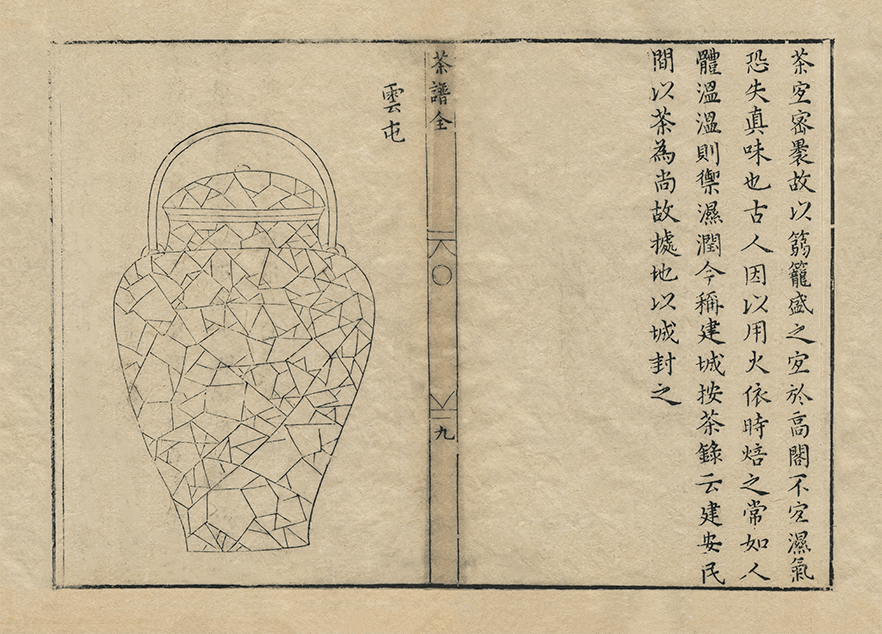 茶宜密裹故以篛籠盛之宜於高閣不宜濕氣
恐失真味也古人因以用火依時焙之常如人
體溫溫則禦濕潤今稱建城按茶錄云建安民
間以茶為尚故據地以城封之
茶譜全
九
雲屯